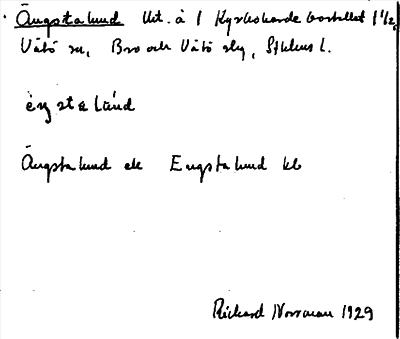 Ängstalund Utt. å 1 Kyrkoherdebostället 1 1/2,
Vätö sn, Bro och Vätö slg, Sthlms l.
èŋstalúnd
Ängstalund ek Engstalund kb
Rickard Norrman 1929